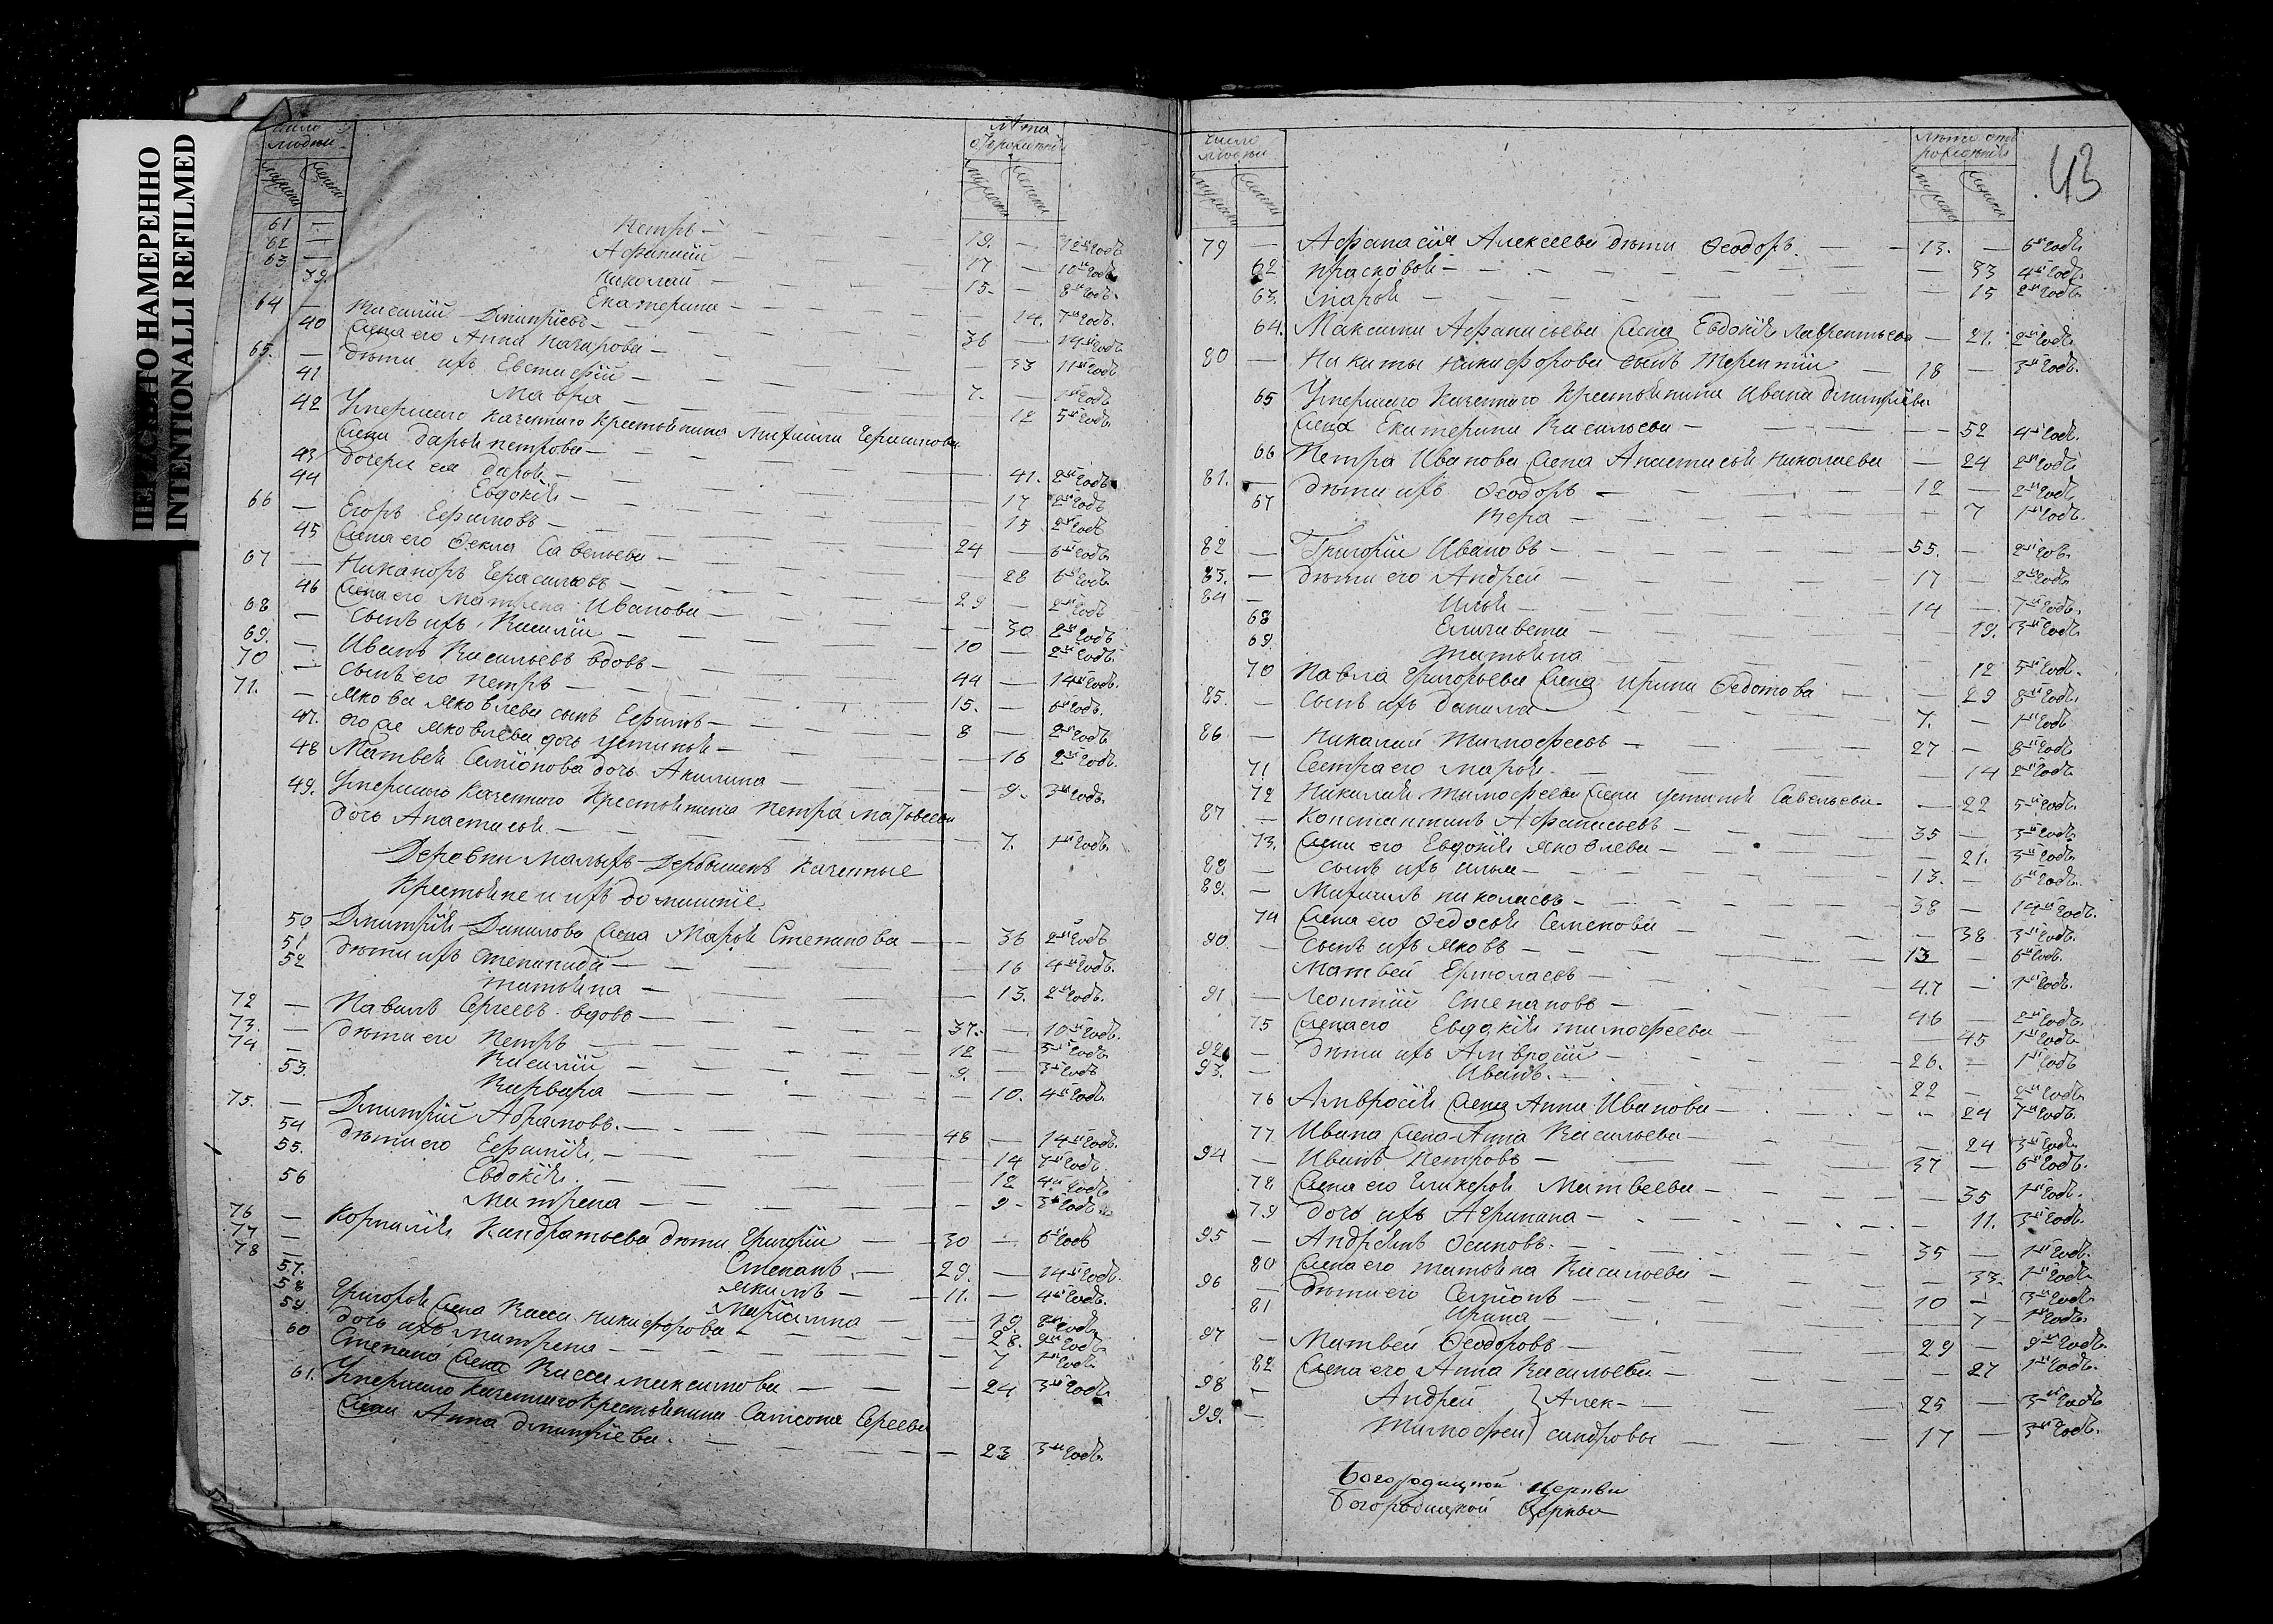 ПЕРЕСНЯТО НАМЕРЕННО
INTENTIONALLI REFILMED
число людей
мужеска женска
лета от рождения
мужеска женска
61 — Петръ — 19. —
62 — Афанасий — 17 — 10 годъ
63 — Николай — 15. — 8 годъ
39. Екатерина — 14. 7 годъ
64 — Василій Дмитріевъ — 36 — 19 годъ
40 Жена его Анна Назарова — 33 11 годъ
65. — дѣти ихъ Евстафій — 7. — 1 годъ
41 Мавра — 12 5 годъ
42 Умершаго Казеннаго Крестьянина Михаила Герасимова
Жена Дарья Петрова — 41. 2 годъ
43 дочери ея Дарья — 17 2 годъ
44 Евдокія — 15 2 годъ
66 — Егоръ Ефимовъ — 24 — 6 годъ
45 Жена его Ѳекла Савельева — 28 6 годъ
67 — Никаноръ Герасимовъ — 29 — 2 годъ
46 Жена его Матрена Иванова — 30 2 годъ
68 — сынъ ихъ Василій — 10 — 2 годъ
69. — Иванъ Васильевъ вдовъ — 44 — 14 годъ
70 — сынъ его Петръ — 15. — 6 годъ
71. — Якова Яковлева сынъ Ефимъ — 8 — 2 годъ
47. его же Яковлева дочь Устинья — 16 2 годъ
48 Матвея Семіонова дочь Акилина — 9. 3 годъ
49. Умершаго Казеннаго Крестьянина Петра Матвеева
дочь Анастасья — 7. 1 годъ
Деревни Малыхъ Дербышекъ Казенные
Крестьяне и ихъ домашніе.
50 Дмитрія Данилова Жена Марья Степанова — 36 2 годъ
51 дѣти ихъ Степанида — 16 4 годъ
52 Татьяна — 13. 2 годъ
72 — Павилъ Сергеевъ вдовъ — 37. — 10 годъ
73. — дѣти его Петръ — 12 — 5 годъ
74 — Василій — 9. — 3 годъ
53. Варвара — 10. 4 годъ
75. — Дмитрій Абрамовъ. — 48 — 14 годъ
54 дѣти его Ефимія — 14 7 годъ
55. Евдокія — 12 4 годъ
56 Матрена — 9 3 годъ
76 — Корнилія Кандратьева дѣти Григорій — 30 — 6 годъ
77 — Степанъ — 29. — 14 годъ
78 — Якимъ — 11. — 4 годъ
57. Маріамна — 19 8 годъ
58 Григорья Жена Васса Никифорова — 28. 9 годъ
59. дочь ихъ Матрена — 7 1 годъ
60 Степана Жена Васса Максимова — 24 3 годъ
61. Умершаго Казеннаго Крестьянина Самсона Сергеева
Жена Анна Дмитріева. — 23 3 годъ
43
число людей
мужеска женска
лета отъ рожденія
мужеска женска
79 — Афанасія Алексеева дѣти Ѳеодоръ. — 13. — 6 годъ
62 Прасковья — 33 4 годъ
63. Марья — 15 2 годъ
64. Максима Афанасьева Жена Евдокія Лаврентьева — 21. 2 годъ
80 — Никиты Никифорова сынъ Терентій — 18 — 3 годъ
65 Умершаго Казеннаго Крестьянина Ивана Дмитріева
Жена Екатерина Васильева — 52 4 годъ
66 Петра Иванова Жена Анастасья Николаева — 24 2 годъ
81. — дѣти ихъ Ѳеодоръ — 12 — 2 годъ
67 Вера — 7 1 годъ
82 — Григорій Ивановъ — 55. — 2 годъ
83. — дѣти его Андрей — 17 — 2 годъ
84 — Илья — 14 — 7 годъ
68 Елизавета — 19. 3 годъ
69. Татьяна — 12 5 годъ
70 Павла Григорьева Жена Ирина Ѳедотова — 29 8 годъ
85. — сынъ ихъ Данила — 7. — 1 годъ
86 — Николай Тимофеевъ — 27 — 8 годъ
71 Сестра его Марья — 14 2 годъ
72 Николая Тимофеева Жена Устинья Савельева — 22 5 годъ
87 — Константинъ Афанасьевъ — 35 — 3 годъ
73. Жена его Евдокія Яковлева — 21. 3 годъ
88 — сынъ ихъ Илья — 13. — 6 годъ
89. — Михаилъ Николаевъ — 38 — 14 годъ
74 Жена его Ѳедосья Семенова — 38 3 годъ
90. — сынъ ихъ Яковъ — 13 — 6 годъ
Матвей Ермолаевъ — 47 — 1 годъ
91 — Леонтій Степановъ — 46 — 2 годъ
75 Жена его Евдокія Тимофеева — 45 1 годъ
92 — дѣти ихъ Амвросій — 26. — 1 годъ
93. — Иванъ. — 22 — 2 годъ
76 Амвросія Жена Анна Иванова — 24 7 годъ
77 Ивана Жена Анна Васильева — 24 3 годъ
94 — Иванъ Петровъ — 37 — 6 годъ
78 Жена его Гликерья Матвеева — 35 1 годъ
79 дочь ихъ Агрипина — 11. 3 годъ
95 — Андреянъ Осиповъ. — 35 — 1 годъ
80 Жена его Татьяна Васильева — 33. 1 годъ
96 — дѣти его Семіонъ — 10 — 3 годъ
81 Ирина — 7 1 годъ
97 — Матвей Ѳеодоровъ — 29 — 9 годъ
82 Жена его Анна Васильева — 27 1 годъ
98 — Андрей } Алек- — 25 — 3 годъ
99. — Тимофей } сандровы — 17 — 3 годъ
Богородицкой церкви
Богородицкой Церкви